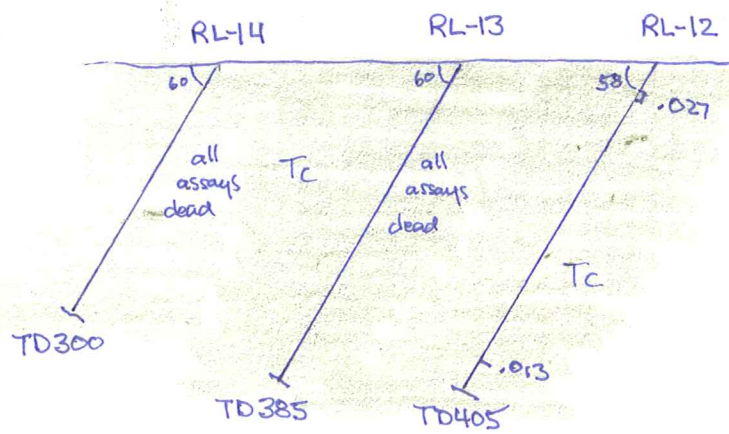 RL-14
RL-13
RL-12
60
60
58
.027
all
assays
dead
Tc
all
assays
dead
Tc
.013
TD300
TD385
TD405